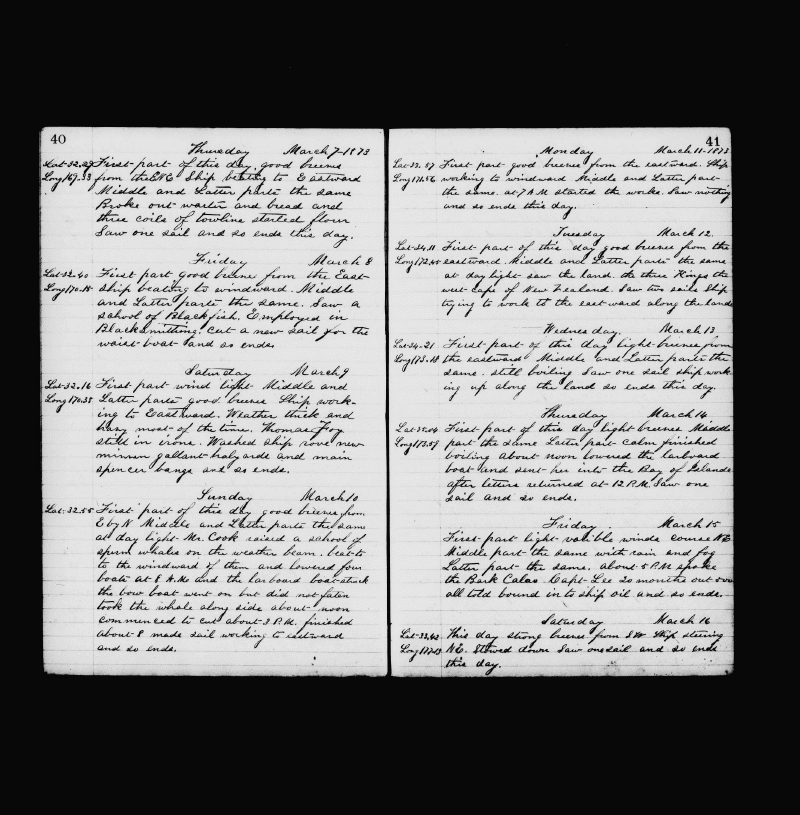 40
Thursday March 7-1873
Lat-32.29 First part of this day good breeze
Long 169.33 from the ENE Ship beating to Eastward
Middle and Latter parts the same
Broke out water and bread and
three coils of towline started flour
Saw one sail and so ends this day.
Friday March 8
Lat-32.40 First part good breeze from the East-
Long 170.15 ship beating to windward. Middle
and Latter parts the same. Saw a
school of Blackfish. Employed in
Blacksmithing. Cut a new sail for the
waist boat and so ends
Saturday March 9
Lat-32.16 First part wind light Middle and
Long 170.35 Latter parts good breeze Ship work-
ing to Eastward. Weather thick and
hazy most of the time. Thomas Foy
still in irons. Washed ship rove new
mizzen gallant halyards and main
spencer bangs and so ends.
Sunday March 10
Lat-32.55 First part of this day good breeze from
E by N Middle and Latter parts the same
at day light Mr. Cook raised a school of
sperm whales on the weather beam. beat to
to the windward of them and lowered four
boats at 8 A.M. and the larboard boat struck
the bow boat went on but did not fasten
took the whale along side about noon
commenced to cut about 3 P.M. finished
about 8 made sail working to eastward
and so ends.
41
Monday March 11-1873
Lat-33.57 First part good breeze from the eastward. Ship
Long 171.56 working to windward Middle and Latter part
the same. at 7 A.M. started the works. Saw nothing
and so ends this day.
Tuesday March 12.
Lat-34.11 First part of this day good breeze from the
Long 172.45 eastward Middle and Latter parts the same
at day light saw the land. the three Kings the
west cape of New Zealand. Saw two sails Ship
trying to work to the eastward along the lands
Wednesday. March 13
Lat-34.21 First part of this day light breeze from
Long 173.18 the eastward Middle and Latter parts the
same. still boiling Saw one sail ship work
ing up along the land so ends this day.
Thursday March 14
Lat-35.04 First part of this day light breezes Middle
Long 173.59 part the same Latter part calm finished
boiling about noon lowered the larboard
boat and sent her into the Bay of Islands
after letters returned at 12 P.M. Saw one
sail and so ends.
Friday March 15
First part light varible winds course NE
Middle part the same with rain and fog
Latter part the same. about 5 P.M. spoke
the Bark Calao. Capt. Lee 20 months out
all told bound in to ship oil and so ends.
Saturday March 16
Lat-33.42 This day strong breeze from SW Ship steering
NE. Stowed down Saw one sail and so ends
this day.